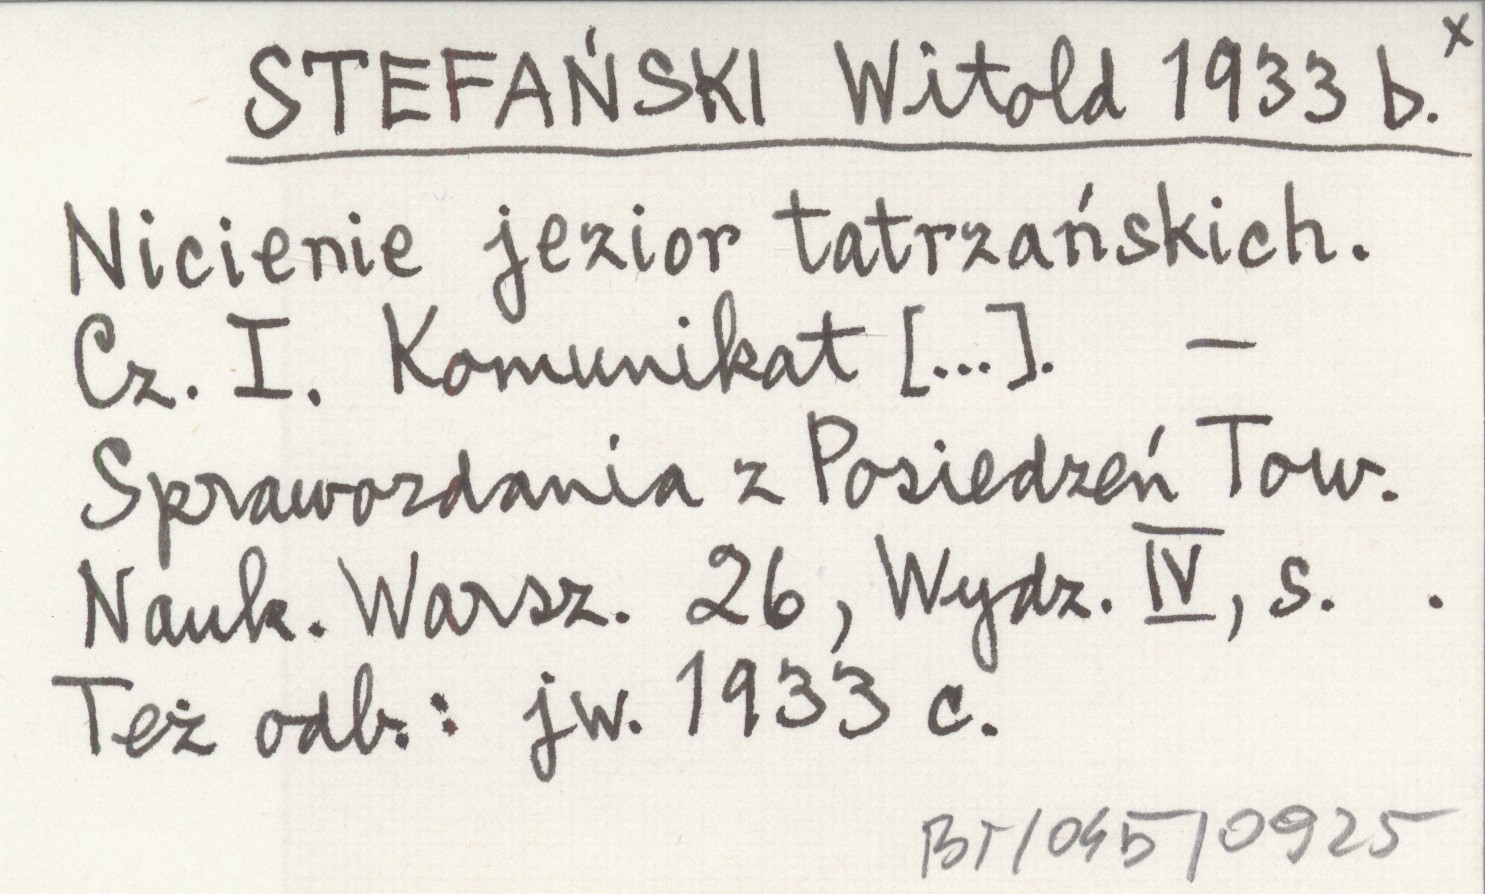 STEFAŃSKI Witold 1933 b. x
Nicienie jezior tatrzańskich.
Cz. I. Komunikat [...]. —
Sprawozdania z Posiedzeń Tow.
Nauk. Warsz. 26, Wydz. IV, s. .
Też odb.: jw. 1933 c.
BT/045/0925